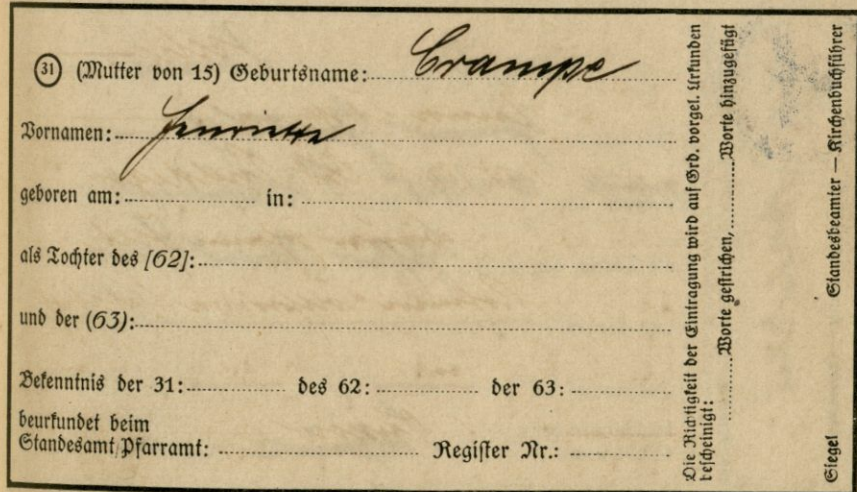 31 (Mutter von 15) Geburtsname: Crampe
Vornamen: Henriette
geboren am: in:
als Tochter des [62]:
und der (63):
Bekenntnis der 31: des 62: der 63:
beurkundet beim
Standesamt/Pfarramt: Register Nr.:
Die Richtigkeit der Eintragung wird auf Grd. vorgel. Urkunden
bescheinigt: Worte gestrichen, Worte hinzugefügt
Siegel Standesbeamter — Kirchenbuchführer